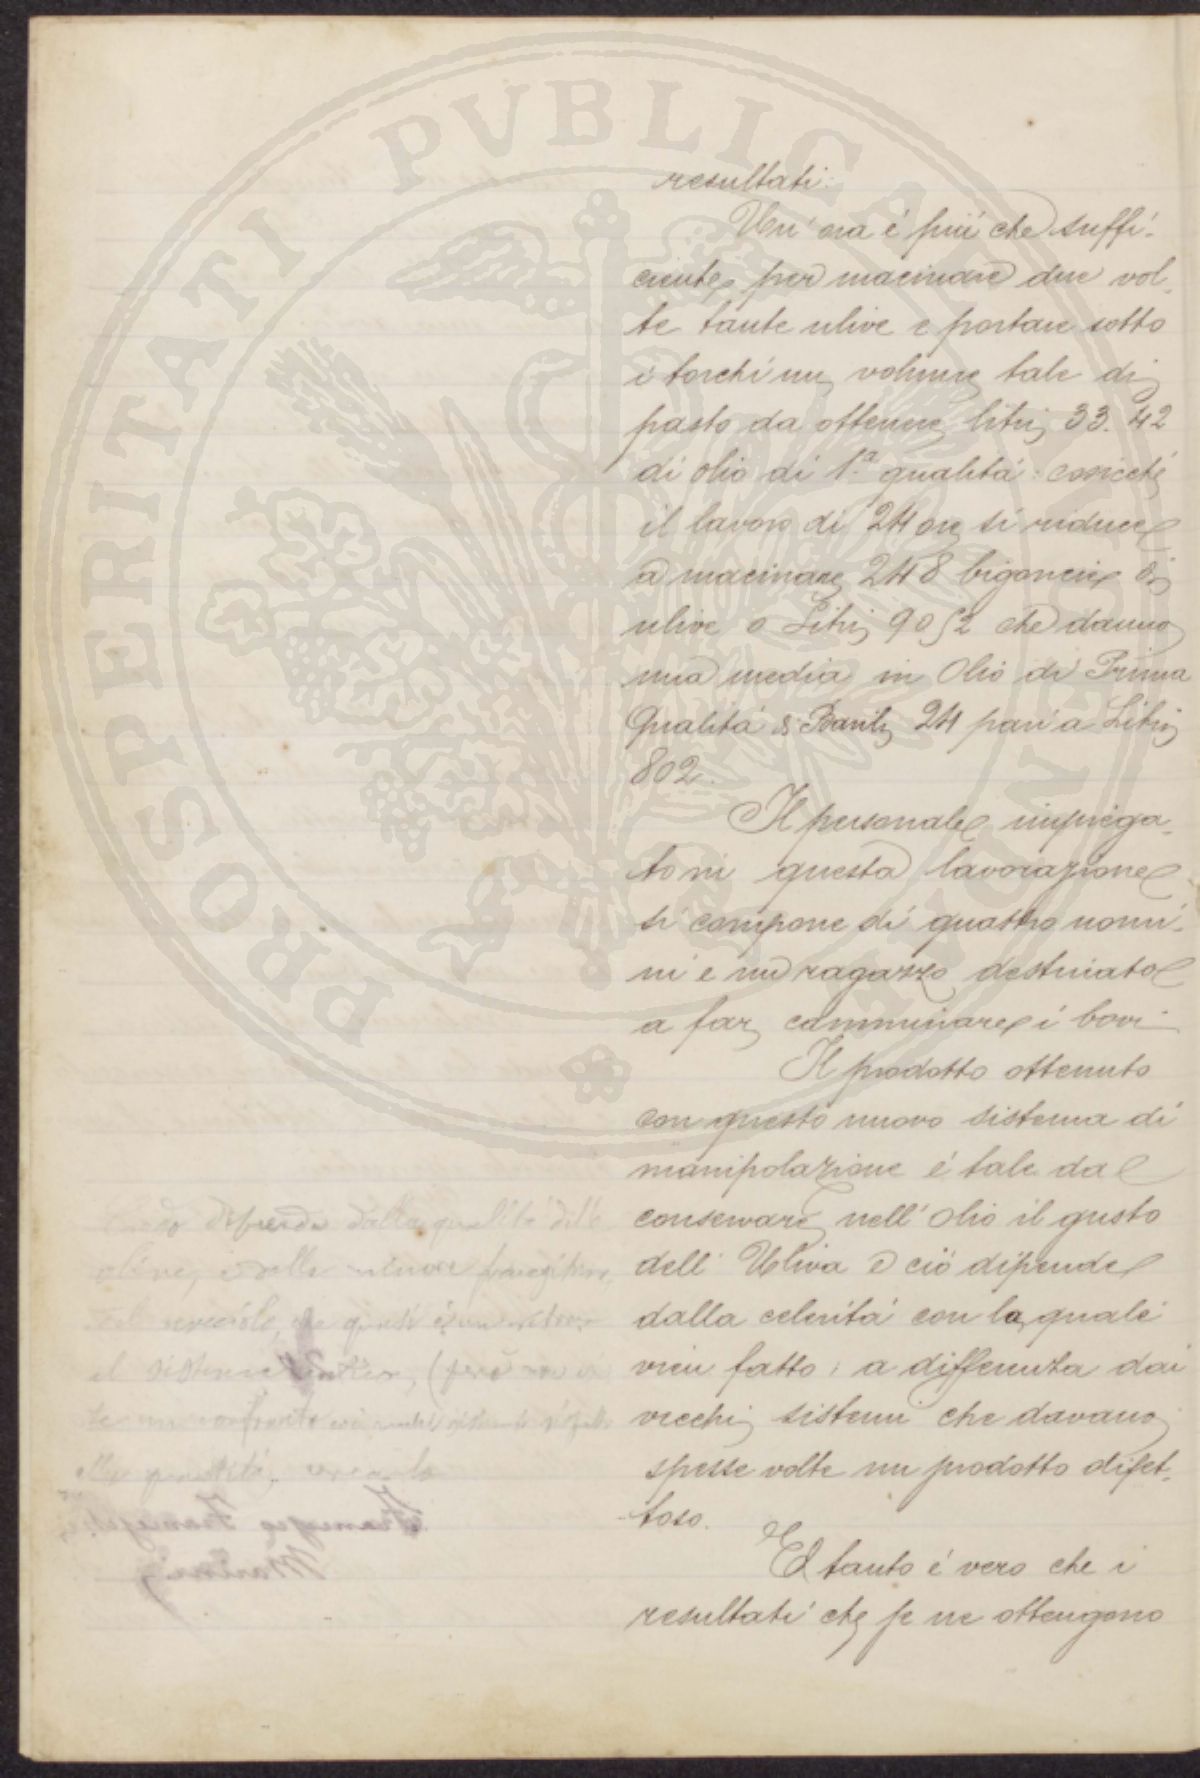 resultati:
Un' ora é piú che suffi-
ciente per macinare due vol-
te tante ulive e portare sotto
i torchi un volume tale di
pasto da ottenere litri 33.42
di olio di 1.a qualitá: cosicché
il lavoro di 24 ore si riduce
a macinare 248 bigoncie di
ulive o Litri 9052 che danno
una media in Olio di Prima
Qualitá di Barili 24 pari a Litri
802.
Il personale impiega-
to in questa lavorazione
si compone di quattro uomi-
ni e un ragazzo destinato
a far camminare i bovi.
Il prodotto ottenuto
con questo nuovo sistema di
manipolazione é tale da
conservare nell' Olio il gusto
dell' Uliva e ció dipende
dalla celeritá con la quale
vien fatto; a differenza dai
vecchi sistemi che davano
spesse volte un prodotto difet-
toso.
E tanto é vero che i
resultati che se ne ottengono
dipende dalla qualità delle
olive, e della
nocciolo, che quindi
il sistema (però
te un confronto
alla quantità,
PROSPERITATI PVBLICAE